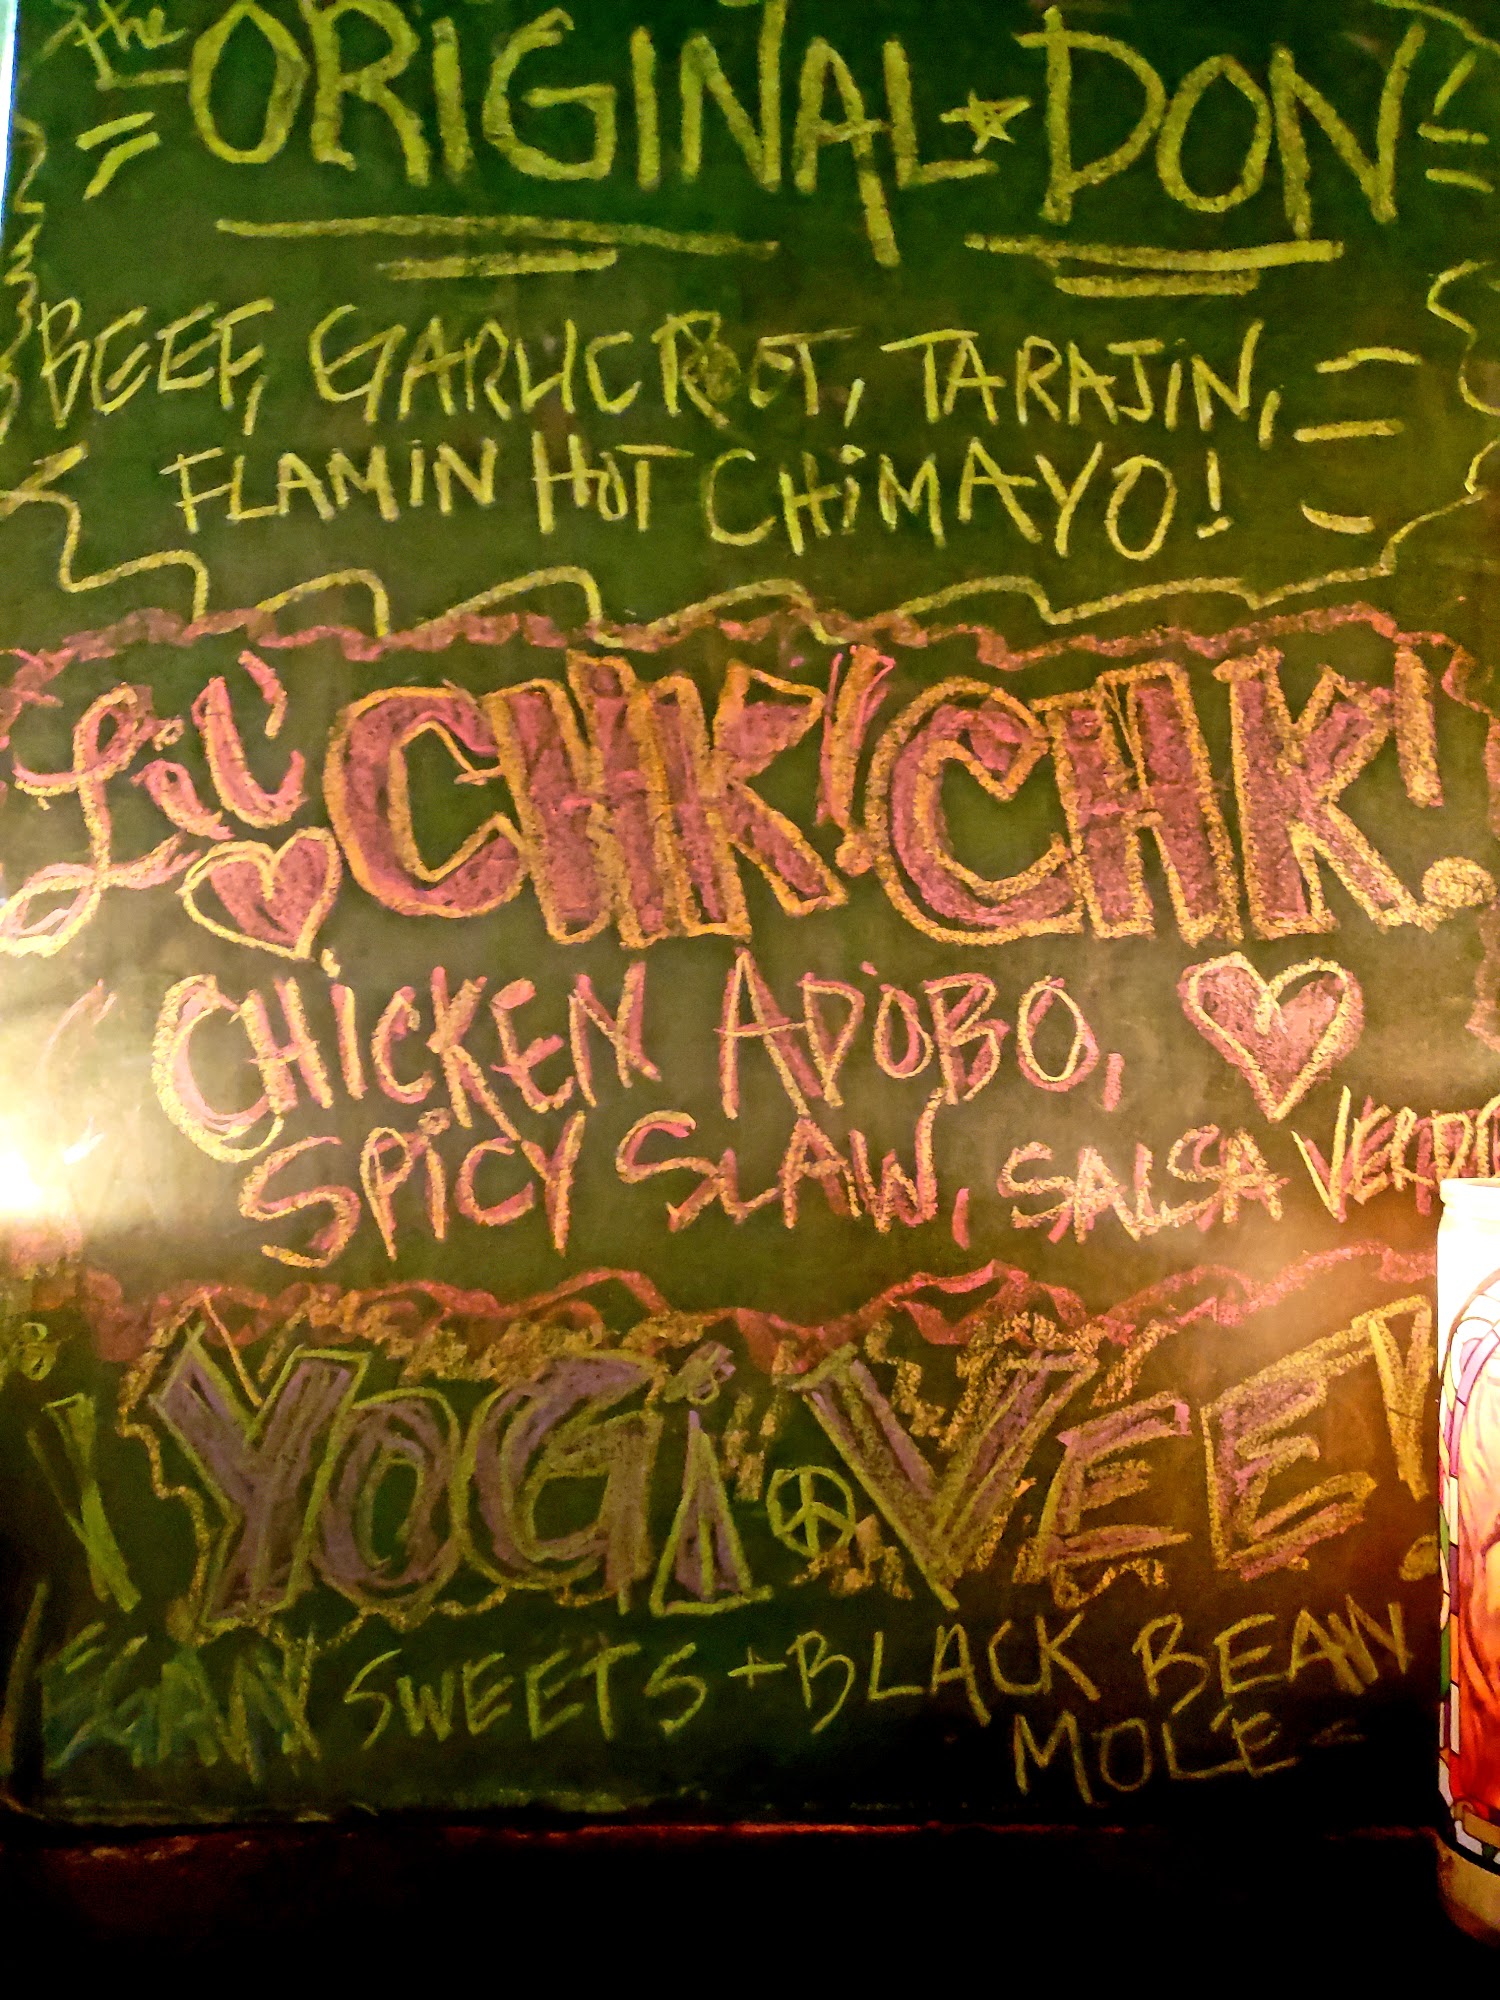 the
ORiGiNAL DON
BEEF, GARLIC ROOT, TARAJiN,
FLAMiN HOT CHiMAYO!
LiL' CHK! CHK!
CHiCKEN ADOBO,
SPiCY SLAW, SALSA VERDE
YOGi VEE!
SWEETS + BLACK BEAN
MOLE